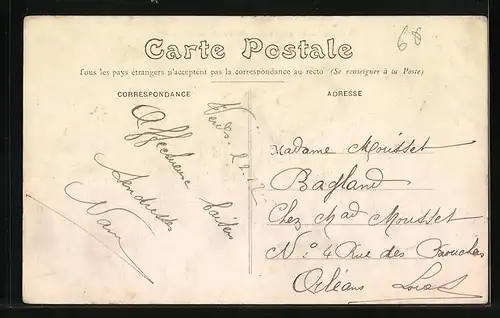 68
Carte Postale
Tous les pays étrangers n'acceptent pas la correspondance au recto (Se renseigner à la Poste)
CORRESPONDANCE
ADRESSE
Affectueuse baisers
tendresses
Madame Mousset
Bagland
Chez Mad Mousset
N° 4 Rue des
Orléans Loiret